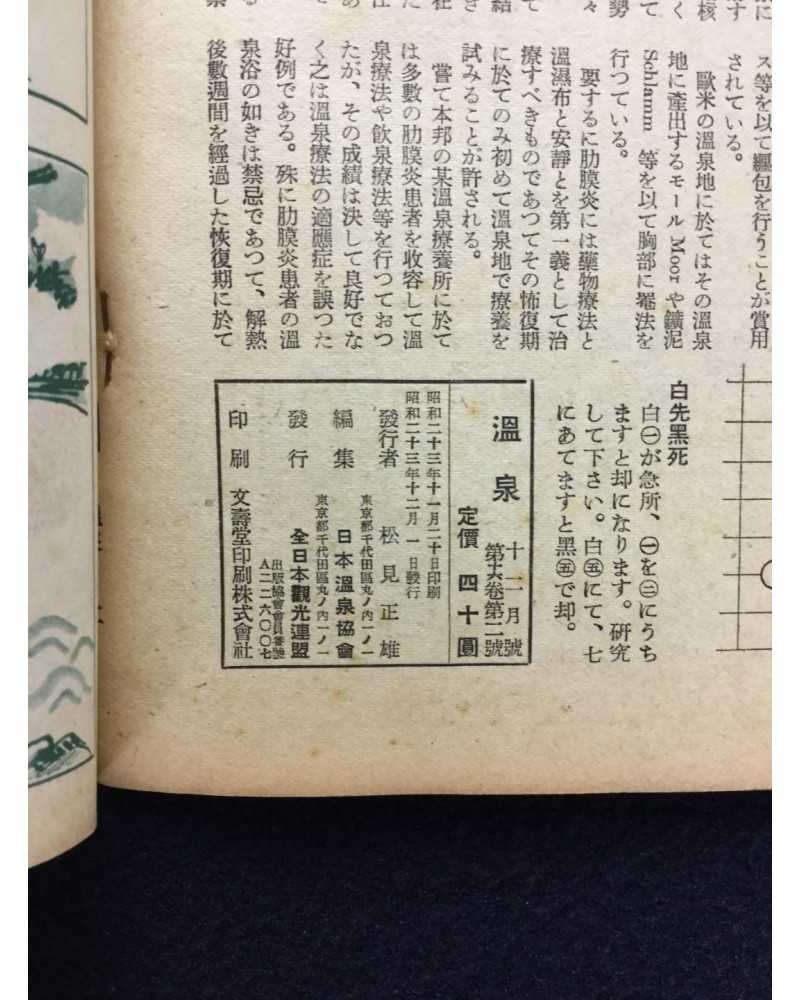 ス等を以て纒包を行うことが賞用
されている。
歐米の溫泉地に於てはその溫泉
地に產出するモール Moor や鑛泥
Schlamm 等を以て胸部に罨法を
行つている。
要するに肋膜炎には藥物療法と
溫濕布と安靜とを第一義として治
療すべきものであつてその恢復期
に於てのみ初めて溫泉地で療養を
試みることが許される。
嘗て本邦の某溫泉療養所に於て
は多數の肋膜炎患者を收容して溫
泉療法や飮泉療法等を行つておつ
たが、その成績は決して良好でな
く之は溫泉療法の適應症を誤つた
好例である。殊に肋膜炎患者の溫
泉浴の如きは禁忌であつて、解熱
後數週間を經過した恢復期に於て
白先黑死
白㊀が急所、㊀を㊂にうち
ますと却になります。研究
して下さい。白㊄にて、七
にあてますと黑㊄で却。
溫泉
十二月號
第十六卷第二號
定價 四十圓
昭和二十三年十一月二十日印刷
昭和二十三年十二月 一 日發行
發行者 松見正雄
東京都千代田區丸ノ內一ノ一
編集 日本溫泉協會
東京都千代田區丸ノ內一ノ一
發行 全日本觀光連盟
出版協會會員番號
A二二六〇〇七
印刷 文壽堂印刷株式會社